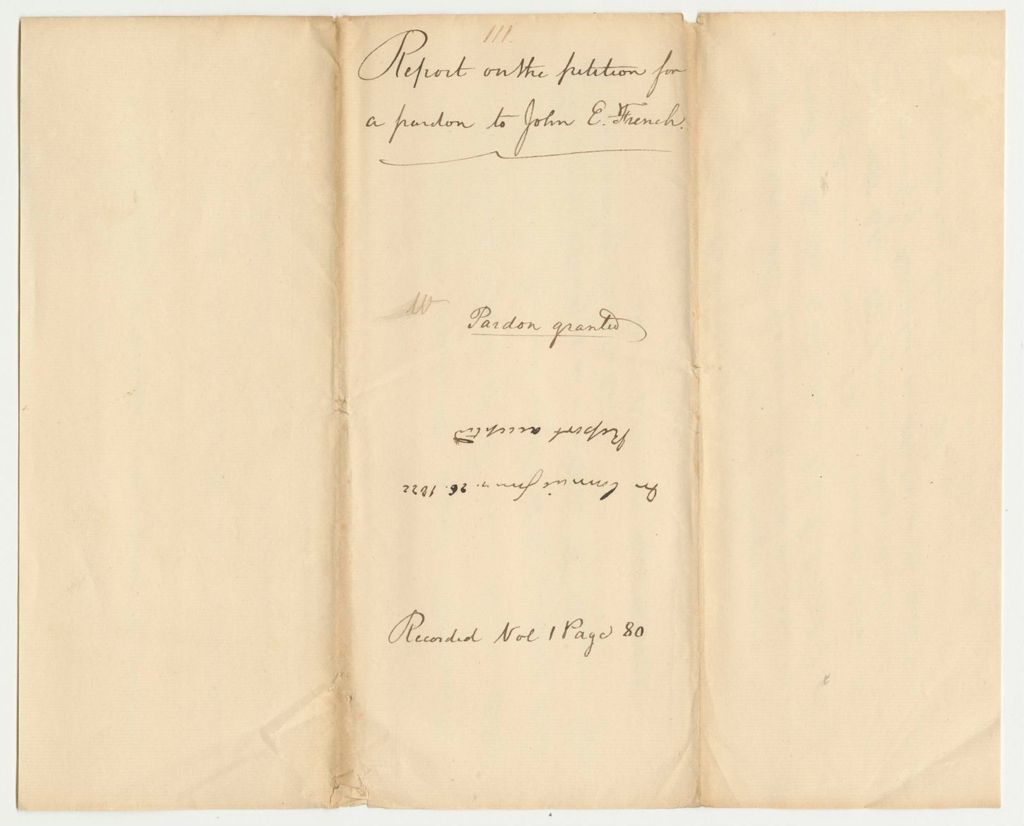 111.
Report on the petition for
a pardon to John E. French.
Pardon granted
In Council Jany. 26. 1822
Report accepted
Recorded Vol 1 Page 80